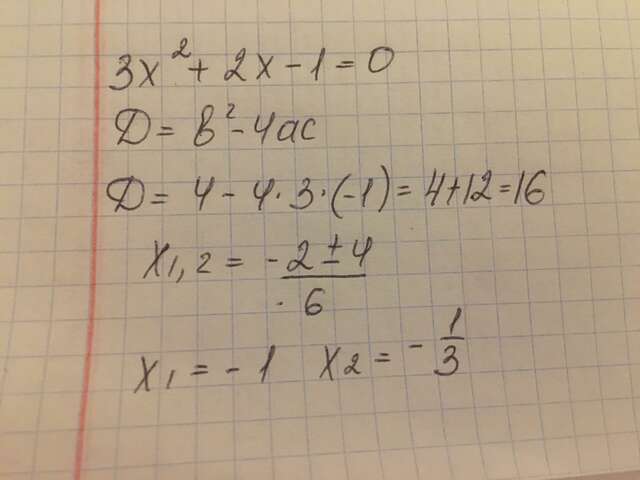 3x² + 2x - 1 = 0
D = b² - 4ac
D = 4 - 4·3·(-1) = 4+12 = 16
x₁,₂ = (-2 ± 4)/6
x₁ = -1 x₂ = -1/3